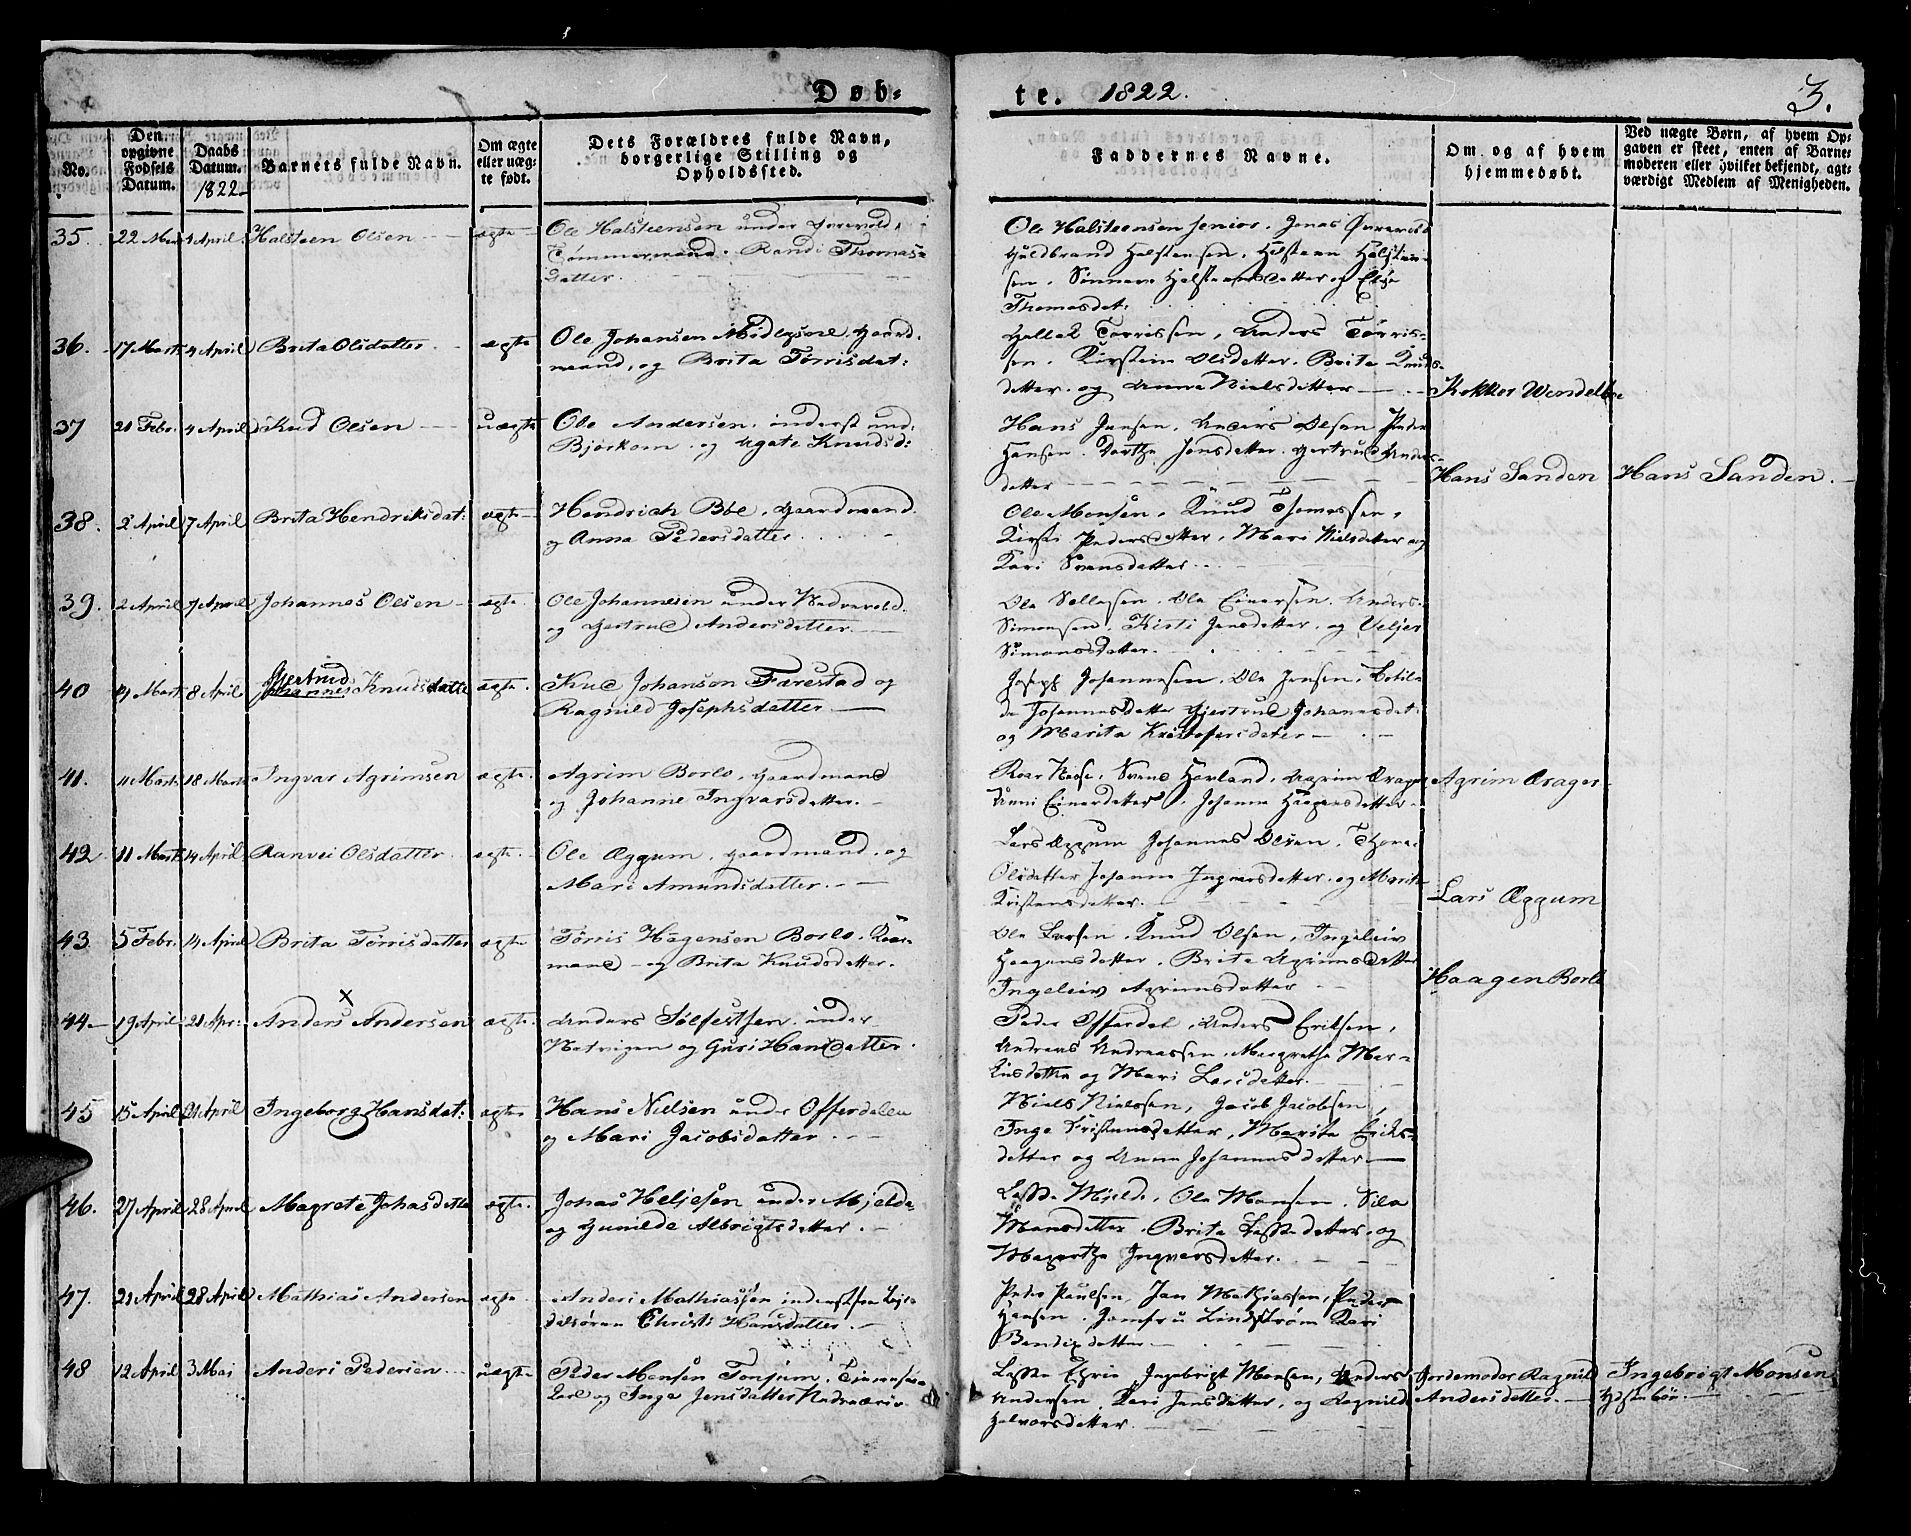 Døb-
te. 1822.
3.
No.
Den opgivne Fødsels Datum.
Daabs Datum. 1822
Barnets fulde Navn.
Om ægte eller uægte født.
Dets Forældres fulde Navn, borgerlige Stilling og Opholdssted.
Faddernes Navne.
Om og af hvem hjemmedøbt.
Ved uægte Børn, af hvem Opgaven er skeet, enten af Barnemoderen eller hvilket bekjendt, agtværdigt Medlem af Menigheden.
35. 22 Mart 4 April Halsteen Olsen ægte
Ole Halsteensen under
Tømmermand. Randi Thomas-
datter.
Ole Halsteensen senior. Jonas
Huldbrand Halstensen, Halsteen Halsteen-
sen, Halsteensdatter og Else
Thomasdat:
36. 17 Mart 4 April Brita Olsdatter ægte
Ole Johansen Gaard-
mand, og Brita Torrisdat:
Torrissen, Anders Torris-
sen. Kirstein Olsdatter. Brita Knuds-
datter. og Anna Nielsdatter
Klokker Wendelboe
37 21 Febr. 4 April Knud Olsen uægte
Ole Andersen. inderst und:
Bjørkom og Agate Knudsd:
Hans Jensen. Anders Olsen Peder
Hansen. Dorthe Jensdatter. Gjertrud Anders-
datter
Hans Sanden
Hans Sanden.
38. 2 April 7 April Brita Hendriksdat: ægte
Hendrich Bøe, Gaardmand.
og Anna Pedersdatter
Ole Monsen. Knud Thomassen,
Kirsti Pedersdatter, Mari Nielsdatter og
Kari Svensdatter.
39. 2 April 7 April Johannes Olsen ægte.
Ole Johannesen under
og Gjertrud Andersdatter.
Ole Sellesen. Ole Einersen. Anders
Simonsen. Kirsti Jensdatter. og
Simonsdatter.
40 14 Mart 8 April Gjertrud
Johannes Knudsdatter ægte.
Knud Johanson Farestad og
Ragnild Josephsdatter
Joseph Johannesen. Ole Jensen. Botil-
de Johannesdatter Gjertrud Johannesdat:
og Marita Kristofersdater
41. 11 Mart 18 Marts Ingvar Agrimsen ægte.
Agrim Borlo, Gaardmand
og Johanne Ingvarsdatter.
Roar Svend Hovland, Agrim
Anni Einersdatter, Johanna Haagensdatter
Agrim
42. 11 Mart 14 April Ranvei Olsdatter ægte.
Ole Æggum, Gaardmand, og
Mari Amundsdatter.
Lars Æggum Johannes Olsen.
Olsdatter Johanna Ingvarsdatter. og Marita
Kristensdatter.
Lars Æggum
43 5 Febr. 14 April Brita Tørrisdatter ægte
Tørris Hagensen Borlo.
mand og Brita Knudsdatter.
Ole Larsen. Knud Olsen, Ingeleiv
Haagensdatter. Brita Agrimsdatter
Ingeleiv Agrimsdatter
Haagen Borlo
44 19 April 21 Apr: Anders x Andersen ægte.
Anders Sølfestsen. under
og Guri Hansdatter.
Peder Offerdal, Anders Eriksen,
Andreas Andreassen. Margrethe Mar-
kusdatter og Mari Larsdatter.
45 15 April 21 April Ingeborg Hansdat: ægte
Hans Nielsen under Offerdalen
og Mari Jacobsdatter
Niels Nielssen, Jacob Jacobsen,
Inge Kristensdatter, Marita Eriks-
datter og Anna Johannesdatter
46. 27 April 28 April Magrete Johasdatter ægte.
Johas Heljesen under Mjelde
og Gunilde Albrigtsdatter.
Lasse Mjelde. Ole Monsen. Sila
Monsdatter. Brita Lassedatter. og
Magrethe Ingvarsdatter.
47. 21 April 28 April Mathias Andersen ægte
Anders Mathiassen inderst fra
Christi Hansdatter.
Peder Paulsen. Jan Mathiassen, Peder
Hansen. Jomfru Lindstrøm Kari
Bendixdatter
48 12 April 3 Mai Anders Pedersen uægte
Peder Monsen Tonjum.
og Inga Jensdatter
Lasse Ingebrigt Monsen, Anders
Andersen. Kari Jensdatter, og Ragnild
Halvorsdatter.
Jordemoder Ragnild
Andersdatter.
Ingebrigt Monsen